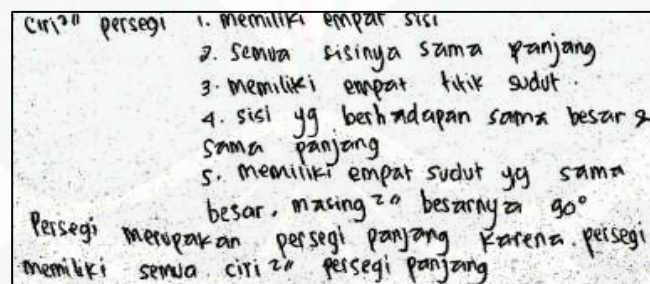 Ciri²" persegi 1. memiliki empat sisi
2. semua sisinya sama panjang
3. memiliki empat titik sudut.
4. sisi yg berhadapan sama besar &
sama panjang
5. memiliki empat sudut yg sama
besar. masing²" besarnya 90°
Persegi merupakan persegi panjang karena persegi
memiliki semua ciri²" persegi panjang